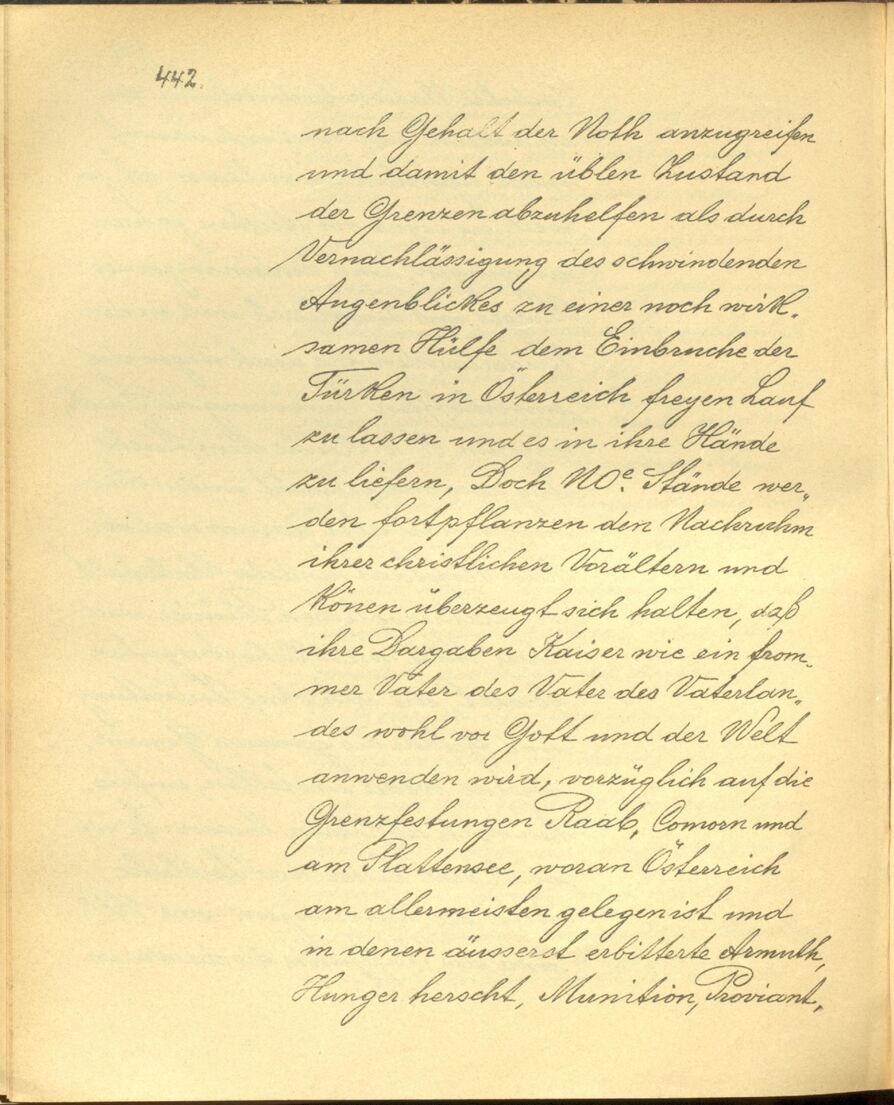 442.
nach Gehalt der Noth anzugreifen
und damit den üblen Zustand
der Grenzen abzuhelfen als durch
Vernachlässigung des schwindenden
Augenblickes zu einer noch wirk-
samen Hülfe dem Einbruche der
Türken in Österreich freyen Lauf
zu lassen und es in ihre Hände
zu liefern, Doch NOe. Stände wer„
den fortpflanzen den Nachruhm
ihrer christlichen Vorältern und
könen überzeugt sich halten, daß
ihre Dargaben Kaiser wie ein from-
mer Vater des Vater des Vaterlan„
des wohl vor Gott und der Welt
anwenden wird, vorzüglich auf die
Grenzfestungen Raab, Comorn und
am Plattensee, woran Österreich
am allermeisten gelegen ist und
in denen äusserst erbitterte Armuth,
Hunger herscht, Munition, Proviant,